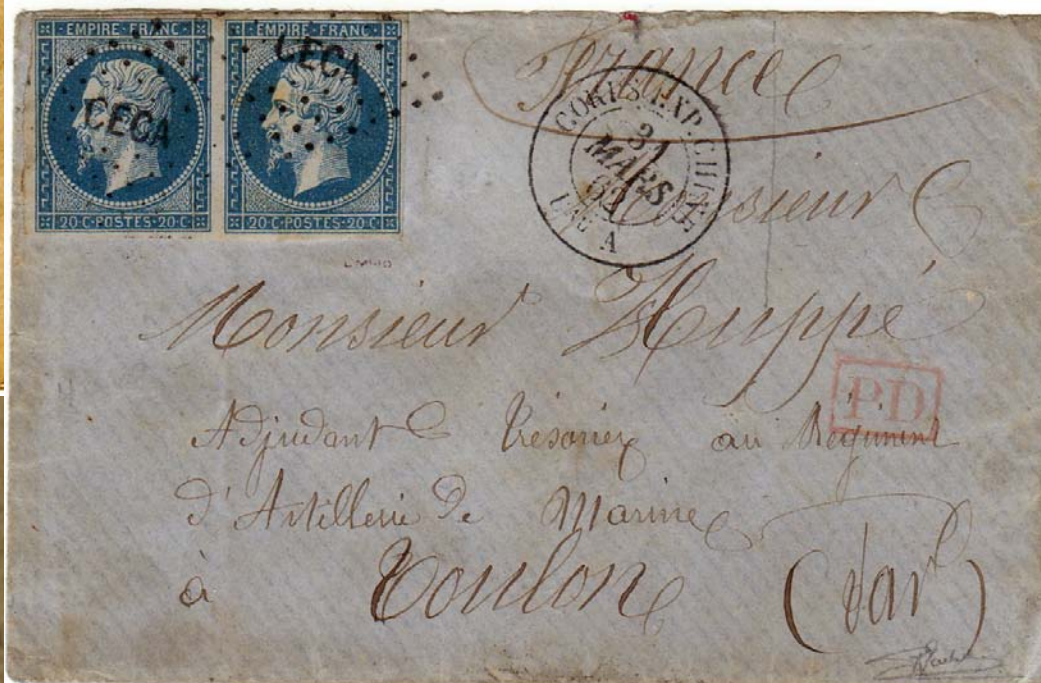 EMPIRE FRANC EMPIRE FRANC
CECA CECA
20 C·POSTES·20 C 20 C·POSTES·20 C
France
CORPS EXP. CHINE
31
MARS
62
Bau A
Monsieur
Monsieur Huppé
PD
Adjudant Trésorier au Régiment
d'Artillerie de Marine
à Toulon (Var)